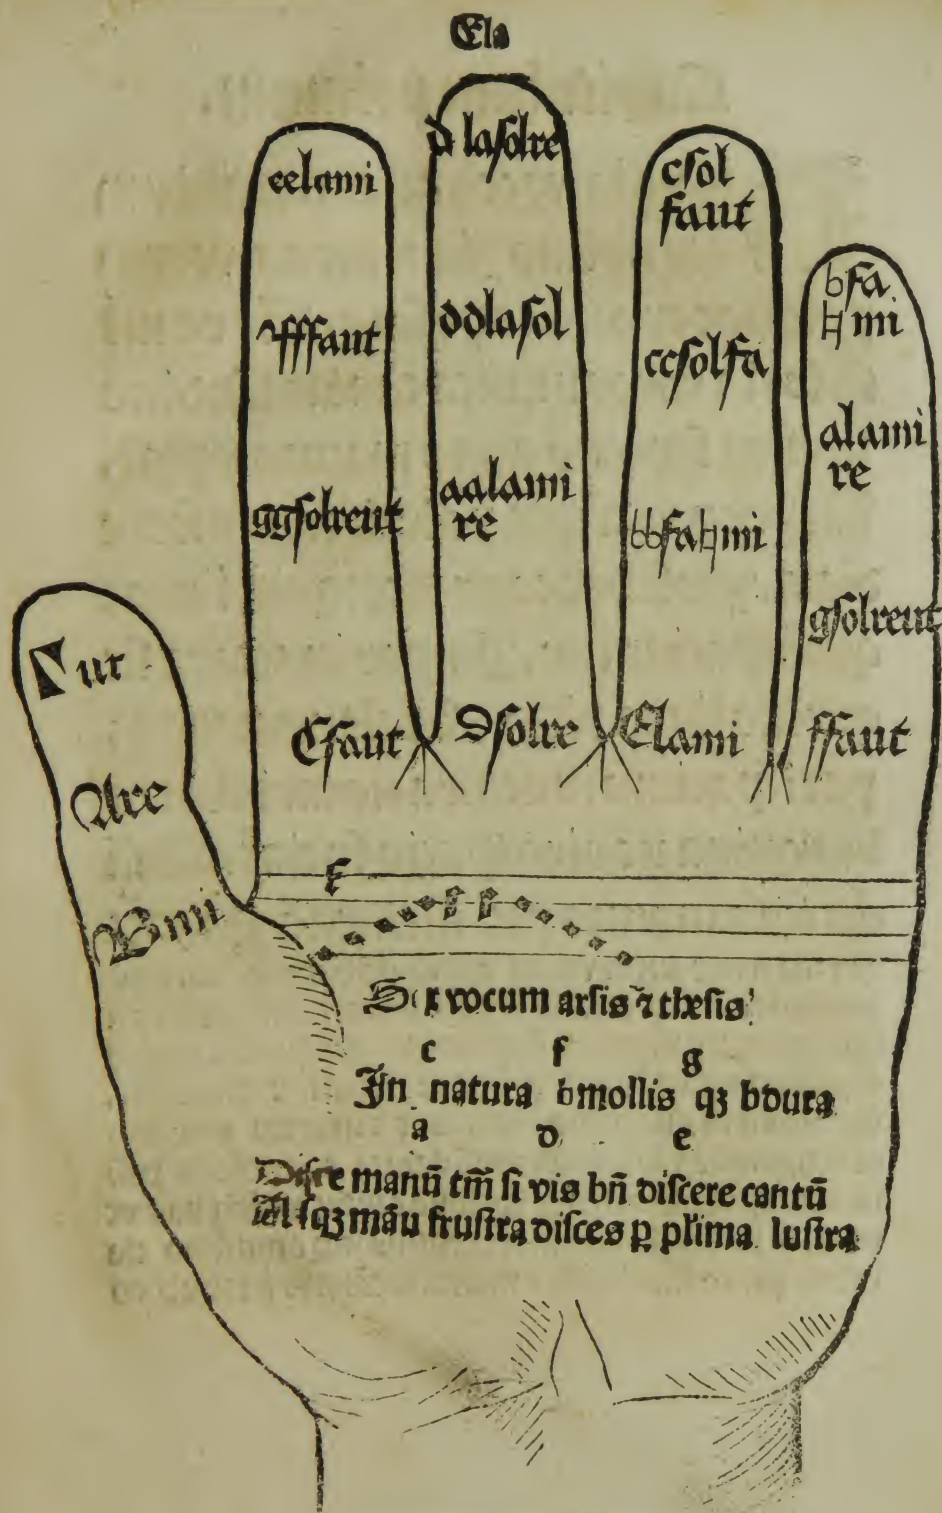 Ela
eelami
ffaut
ggsolreut
Cfaut
dlasolre
ddlasol
aalami
re
Dsolre
csol
faut
ccsolfa
bbfa♮mi
Elami
bfa
♮mi
alami
re
gsolreut
ffaut
Γ ut
Are
Bmi
F
vocum arsis ⁊ thesis
c f g
In natura bmollis qꝫ bdura
a d e
Disce manū tm̄ si vis bn̄ discere cantū
māu frustra disces ꝑ plima lustra